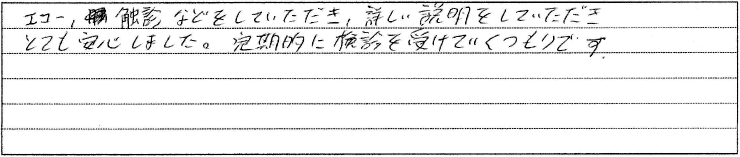 エコー，触診などをしていただき，詳しい説明をしていただき
とても安心しました。定期的に検診を受けていくつもりです